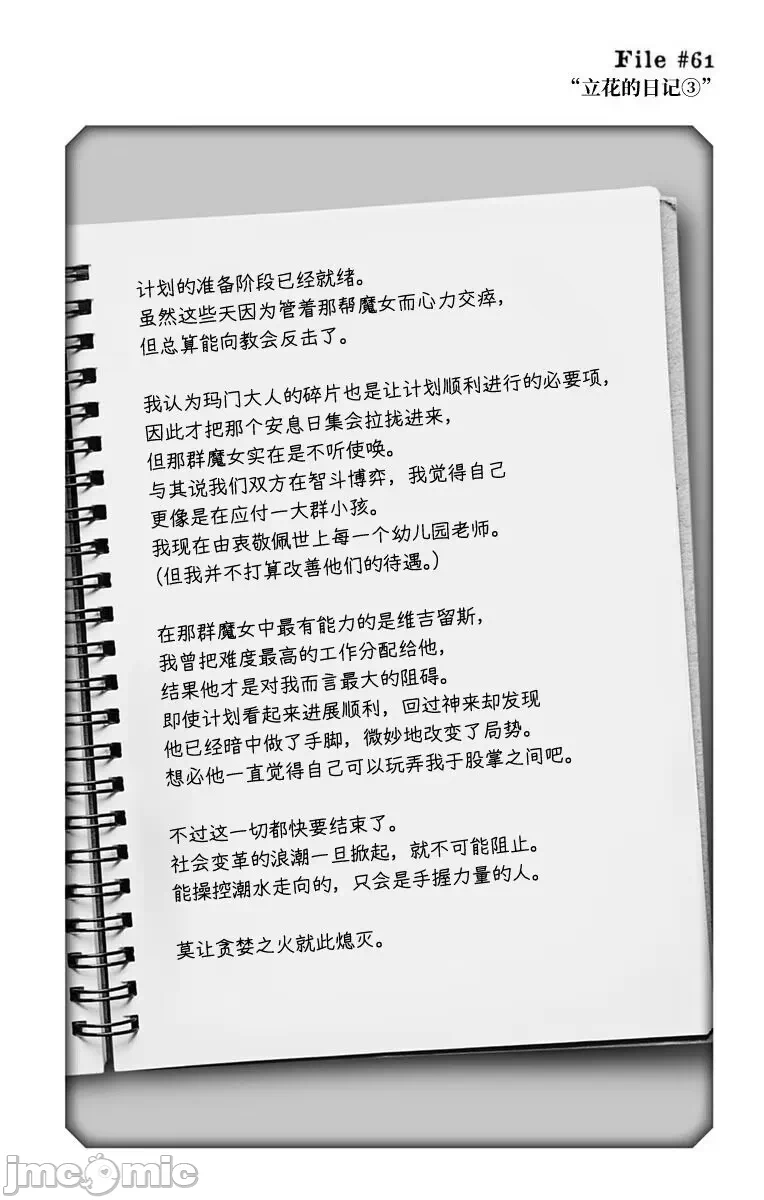 File #61
“立花的日记③”
计划的准备阶段已经就绪。
虽然这些天因为管着那帮魔女而心力交瘁，
但总算能向教会反击了。
我认为玛门大人的碎片也是让计划顺利进行的必要项，
因此才把那个安息日集会拉拢进来，
但那群魔女实在是不听使唤。
与其说我们双方在智斗博弈，我觉得自己
更像是在应付一大群小孩。
我现在由衷敬佩世上每一个幼儿园老师。
（但我并不打算改善他们的待遇。）
在那群魔女中最有能力的是维吉留斯，
我曾把难度最高的工作分配给他，
结果他才是对我而言最大的阻碍。
即使计划看起来进展顺利，回过神来却发现
他已经暗中做了手脚，微妙地改变了局势。
想必他一直觉得自己可以玩弄我于股掌之间吧。
不过这一切都快要结束了。
社会变革的浪潮一旦掀起，就不可能阻止。
能操控潮水走向的，只会是手握力量的人。
莫让贪婪之火就此熄灭。
jmcomic